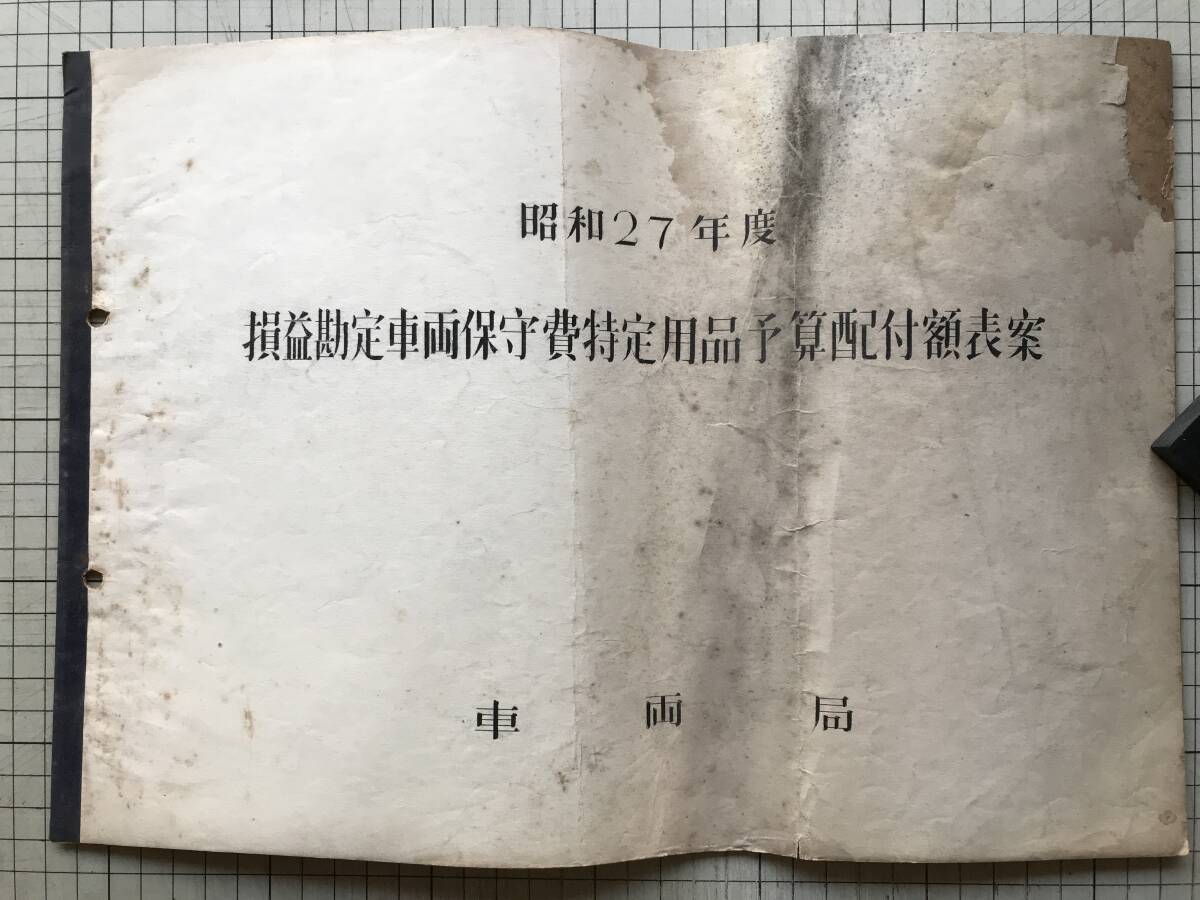 昭和27年度
損益勘定車両保守費特定用品予算配付額表案
車両局